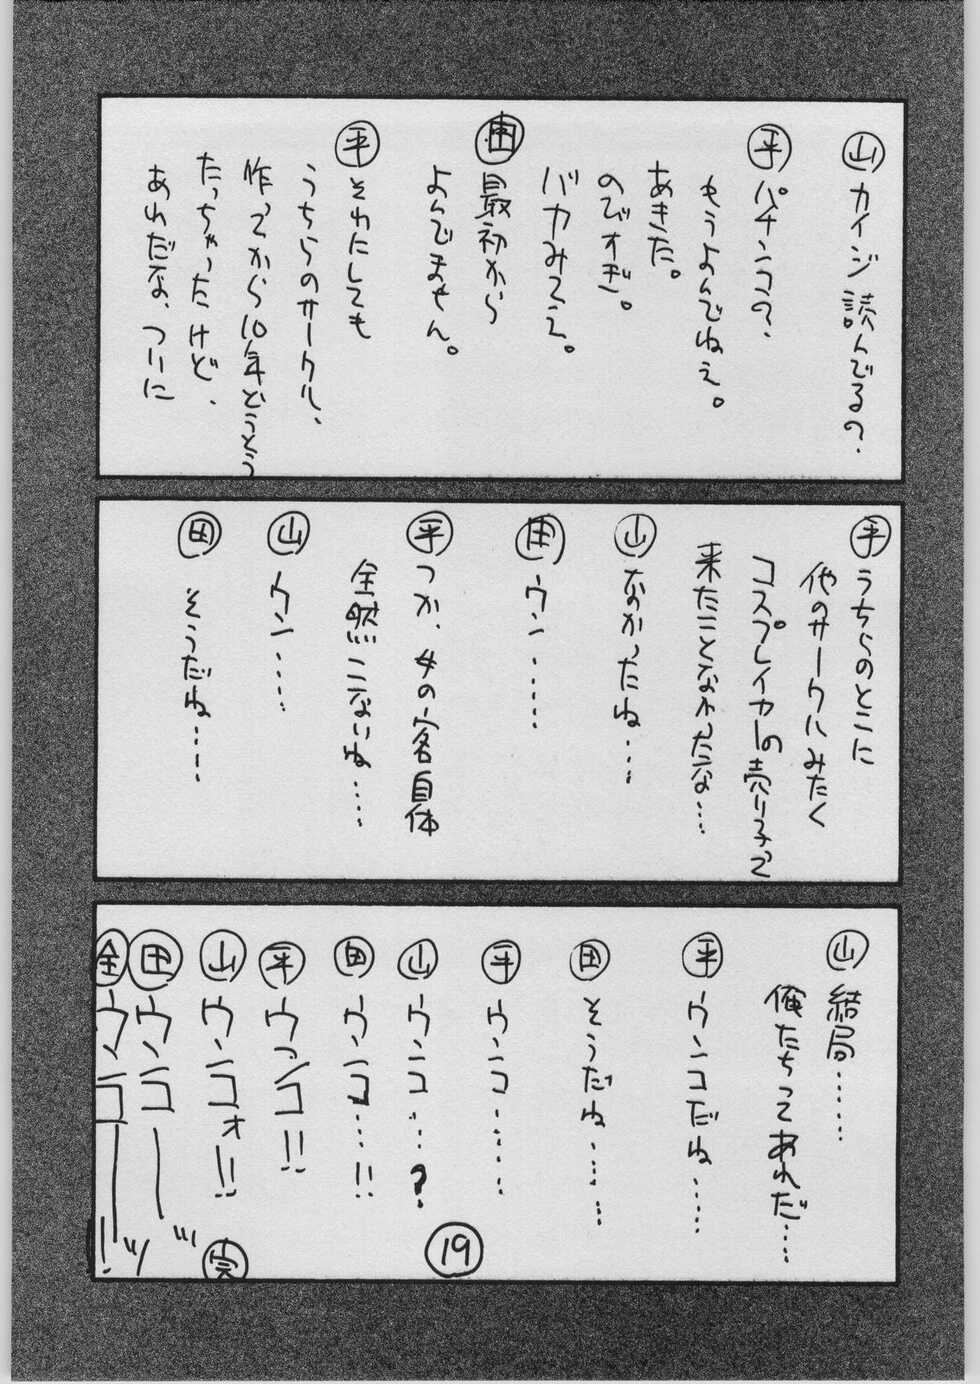 山 カイジ読んでるの?
平 パチンコの?
もうよんでねえ。
あきた。
のびすぎ。
バカみてえ。
田 最初から
よんでません。
平 それにしても
うちらのサークル、
作ってから10年とうとう
たっちゃったけど、
あれだな、ついに
平 うちらのとこに
他のサークルみたく
コスプレイヤーの売り子って
来たことなかったな……
山 なかったね……
田 ウン……
平 つか、女の客自体
全然こないね……
山 ウン……
田 そうだね……
山 結局……
俺たちってあれだ……
平 ウンコだね……
田 そうだね……
平 ウンコ……
山 ウンコ……?
田 ウンコ……!!
平 ウンコ!!
山 ウンコォ!!
田 ウンコーッ
全 ウンコーッ!
完
19